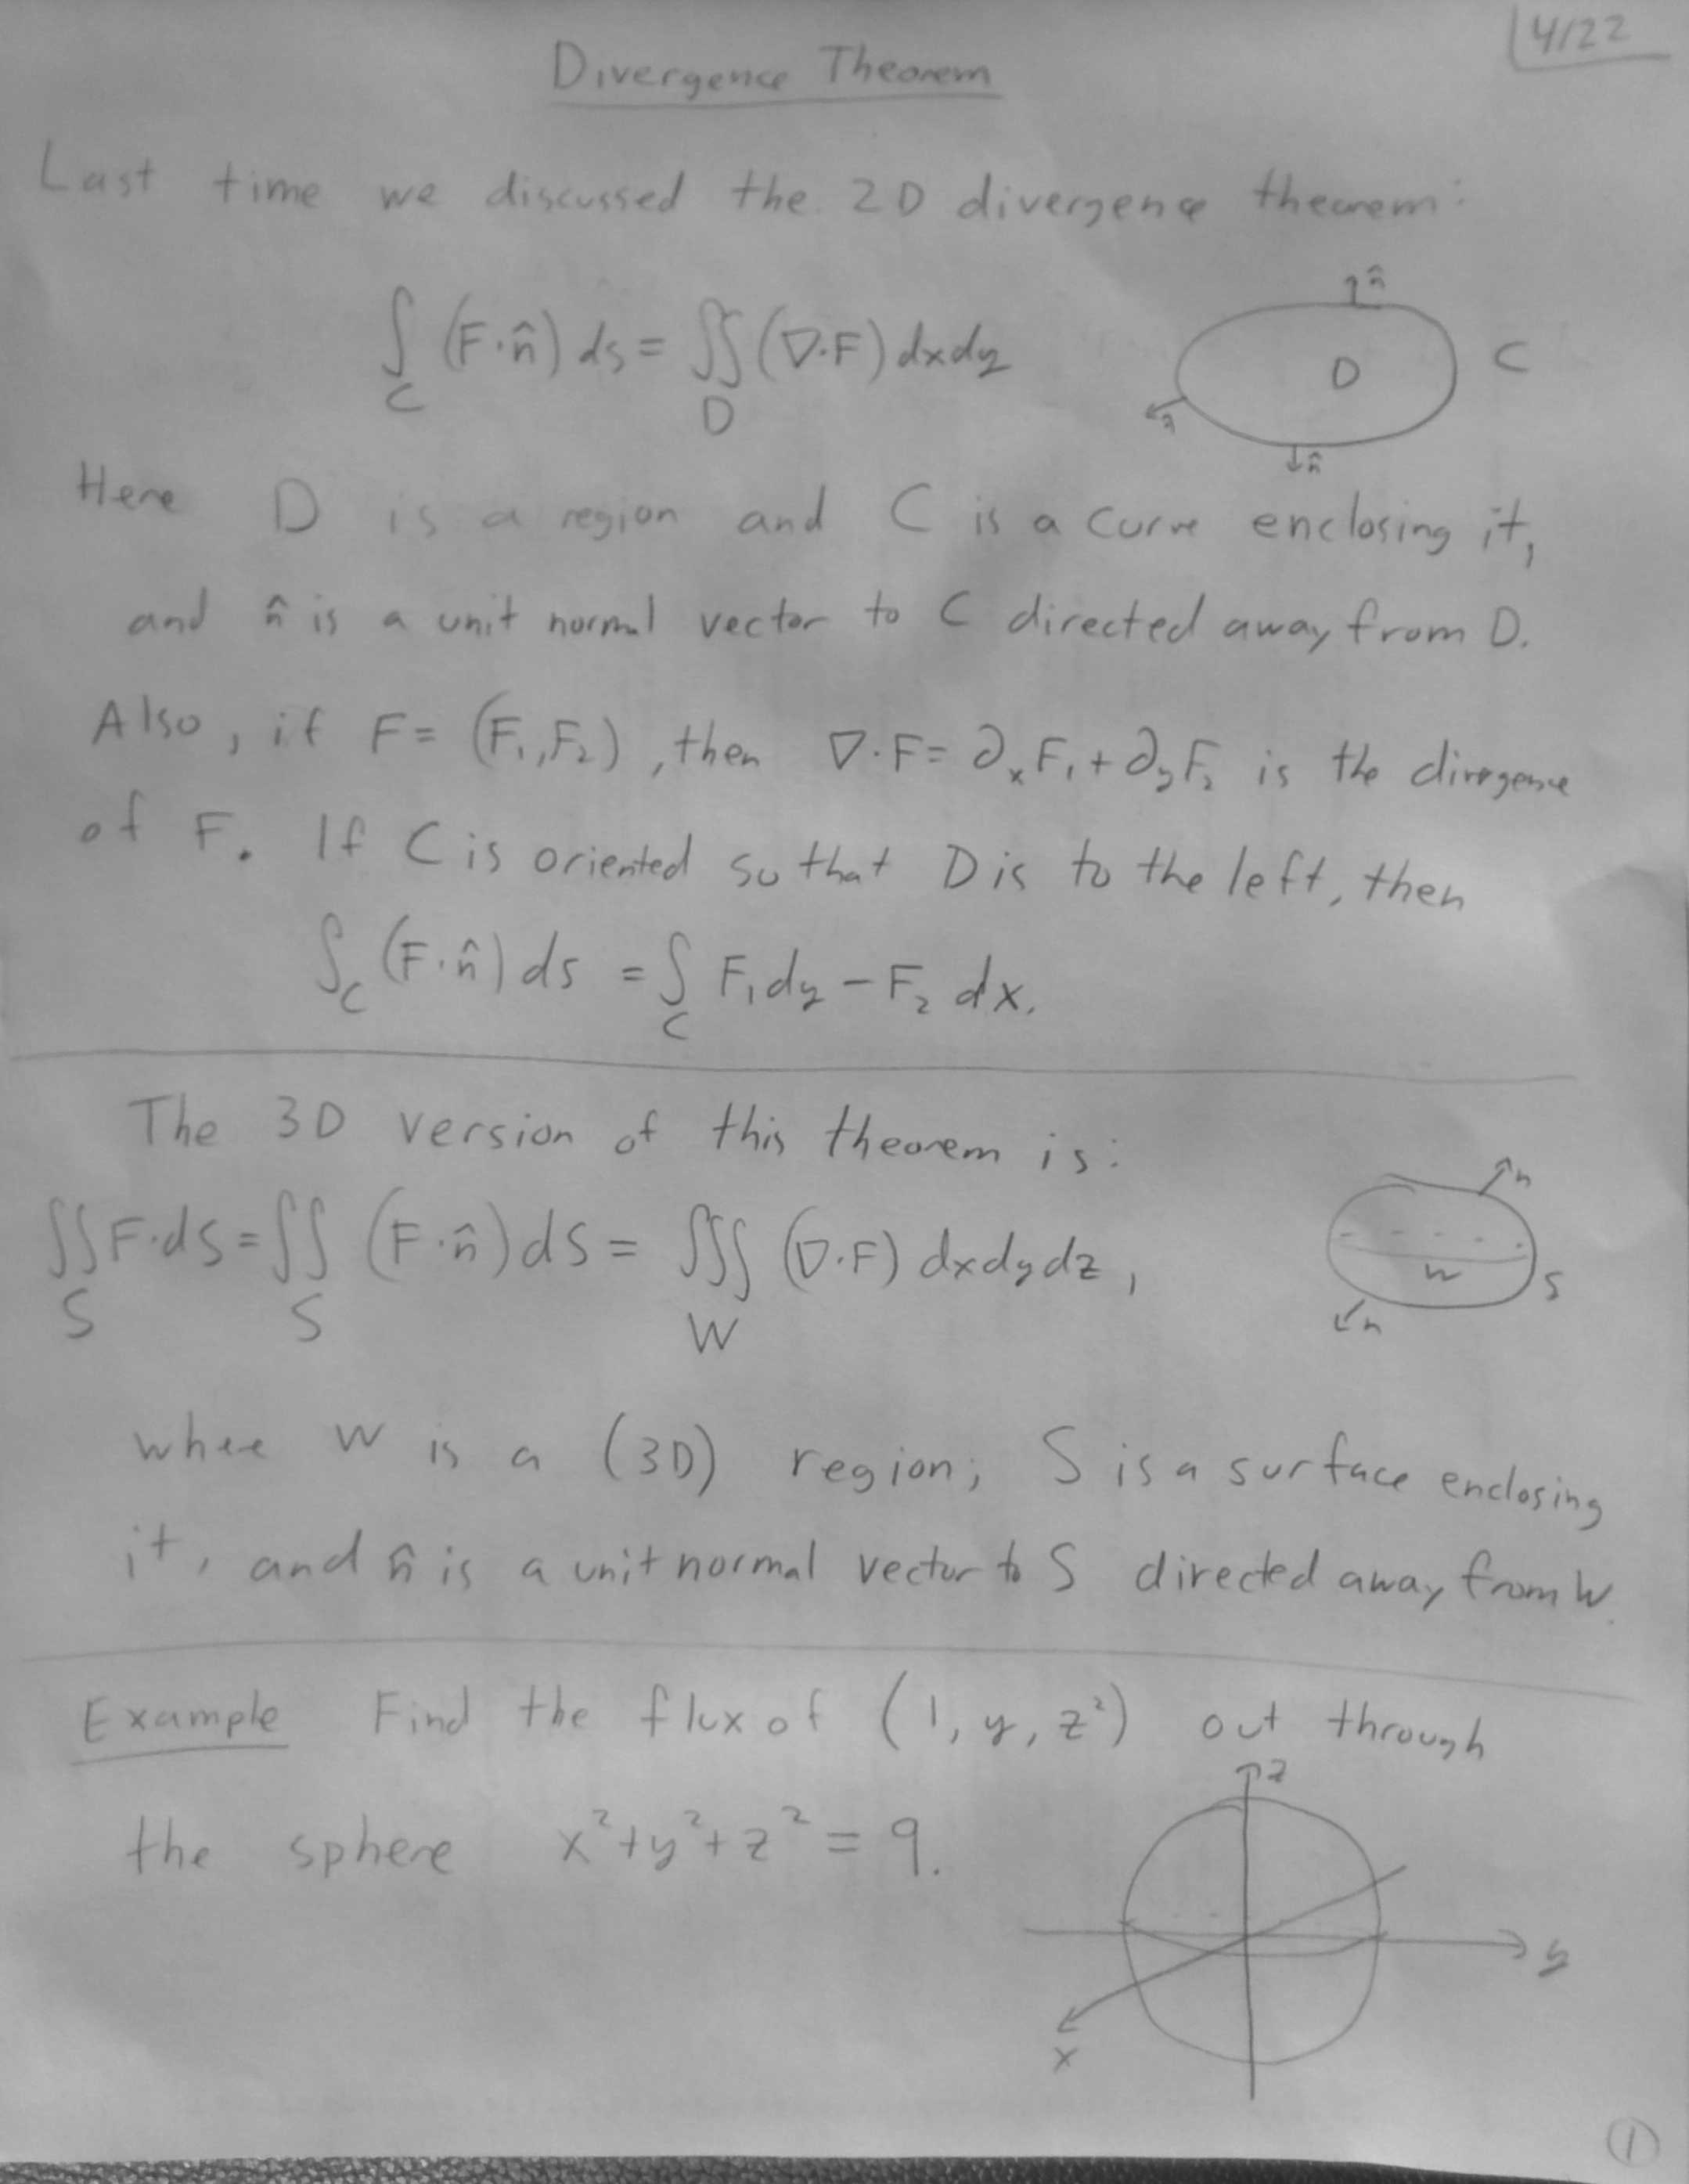 4/22
Divergence Theorem
Last time we discussed the 2D divergence theorem:
∫_C (F·n̂) ds = ∬_D (∇·F) dxdy
n̂
D C
n̂
n̂
Here D is a region and C is a curve enclosing it,
and n̂ is a unit normal vector to C directed away from D.
Also, if F = (F₁,F₂), then ∇·F = ∂ₓF₁ + ∂_yF₂ is the divergence
of F. If C is oriented so that D is to the left, then
∫_C (F·n̂) ds = ∫_C F₁dy − F₂ dx.
The 3D version of this theorem is:
∬_S F·dS = ∬_S (F·n̂) dS = ∭_W (∇·F) dxdydz,
n
W S
n
where W is a (3D) region, S is a surface enclosing
it, and n̂ is a unit normal vector to S directed away from W.
Example Find the flux of (1, y, z²) out through
the sphere x²+y²+z² = 9.
z
y
x
1